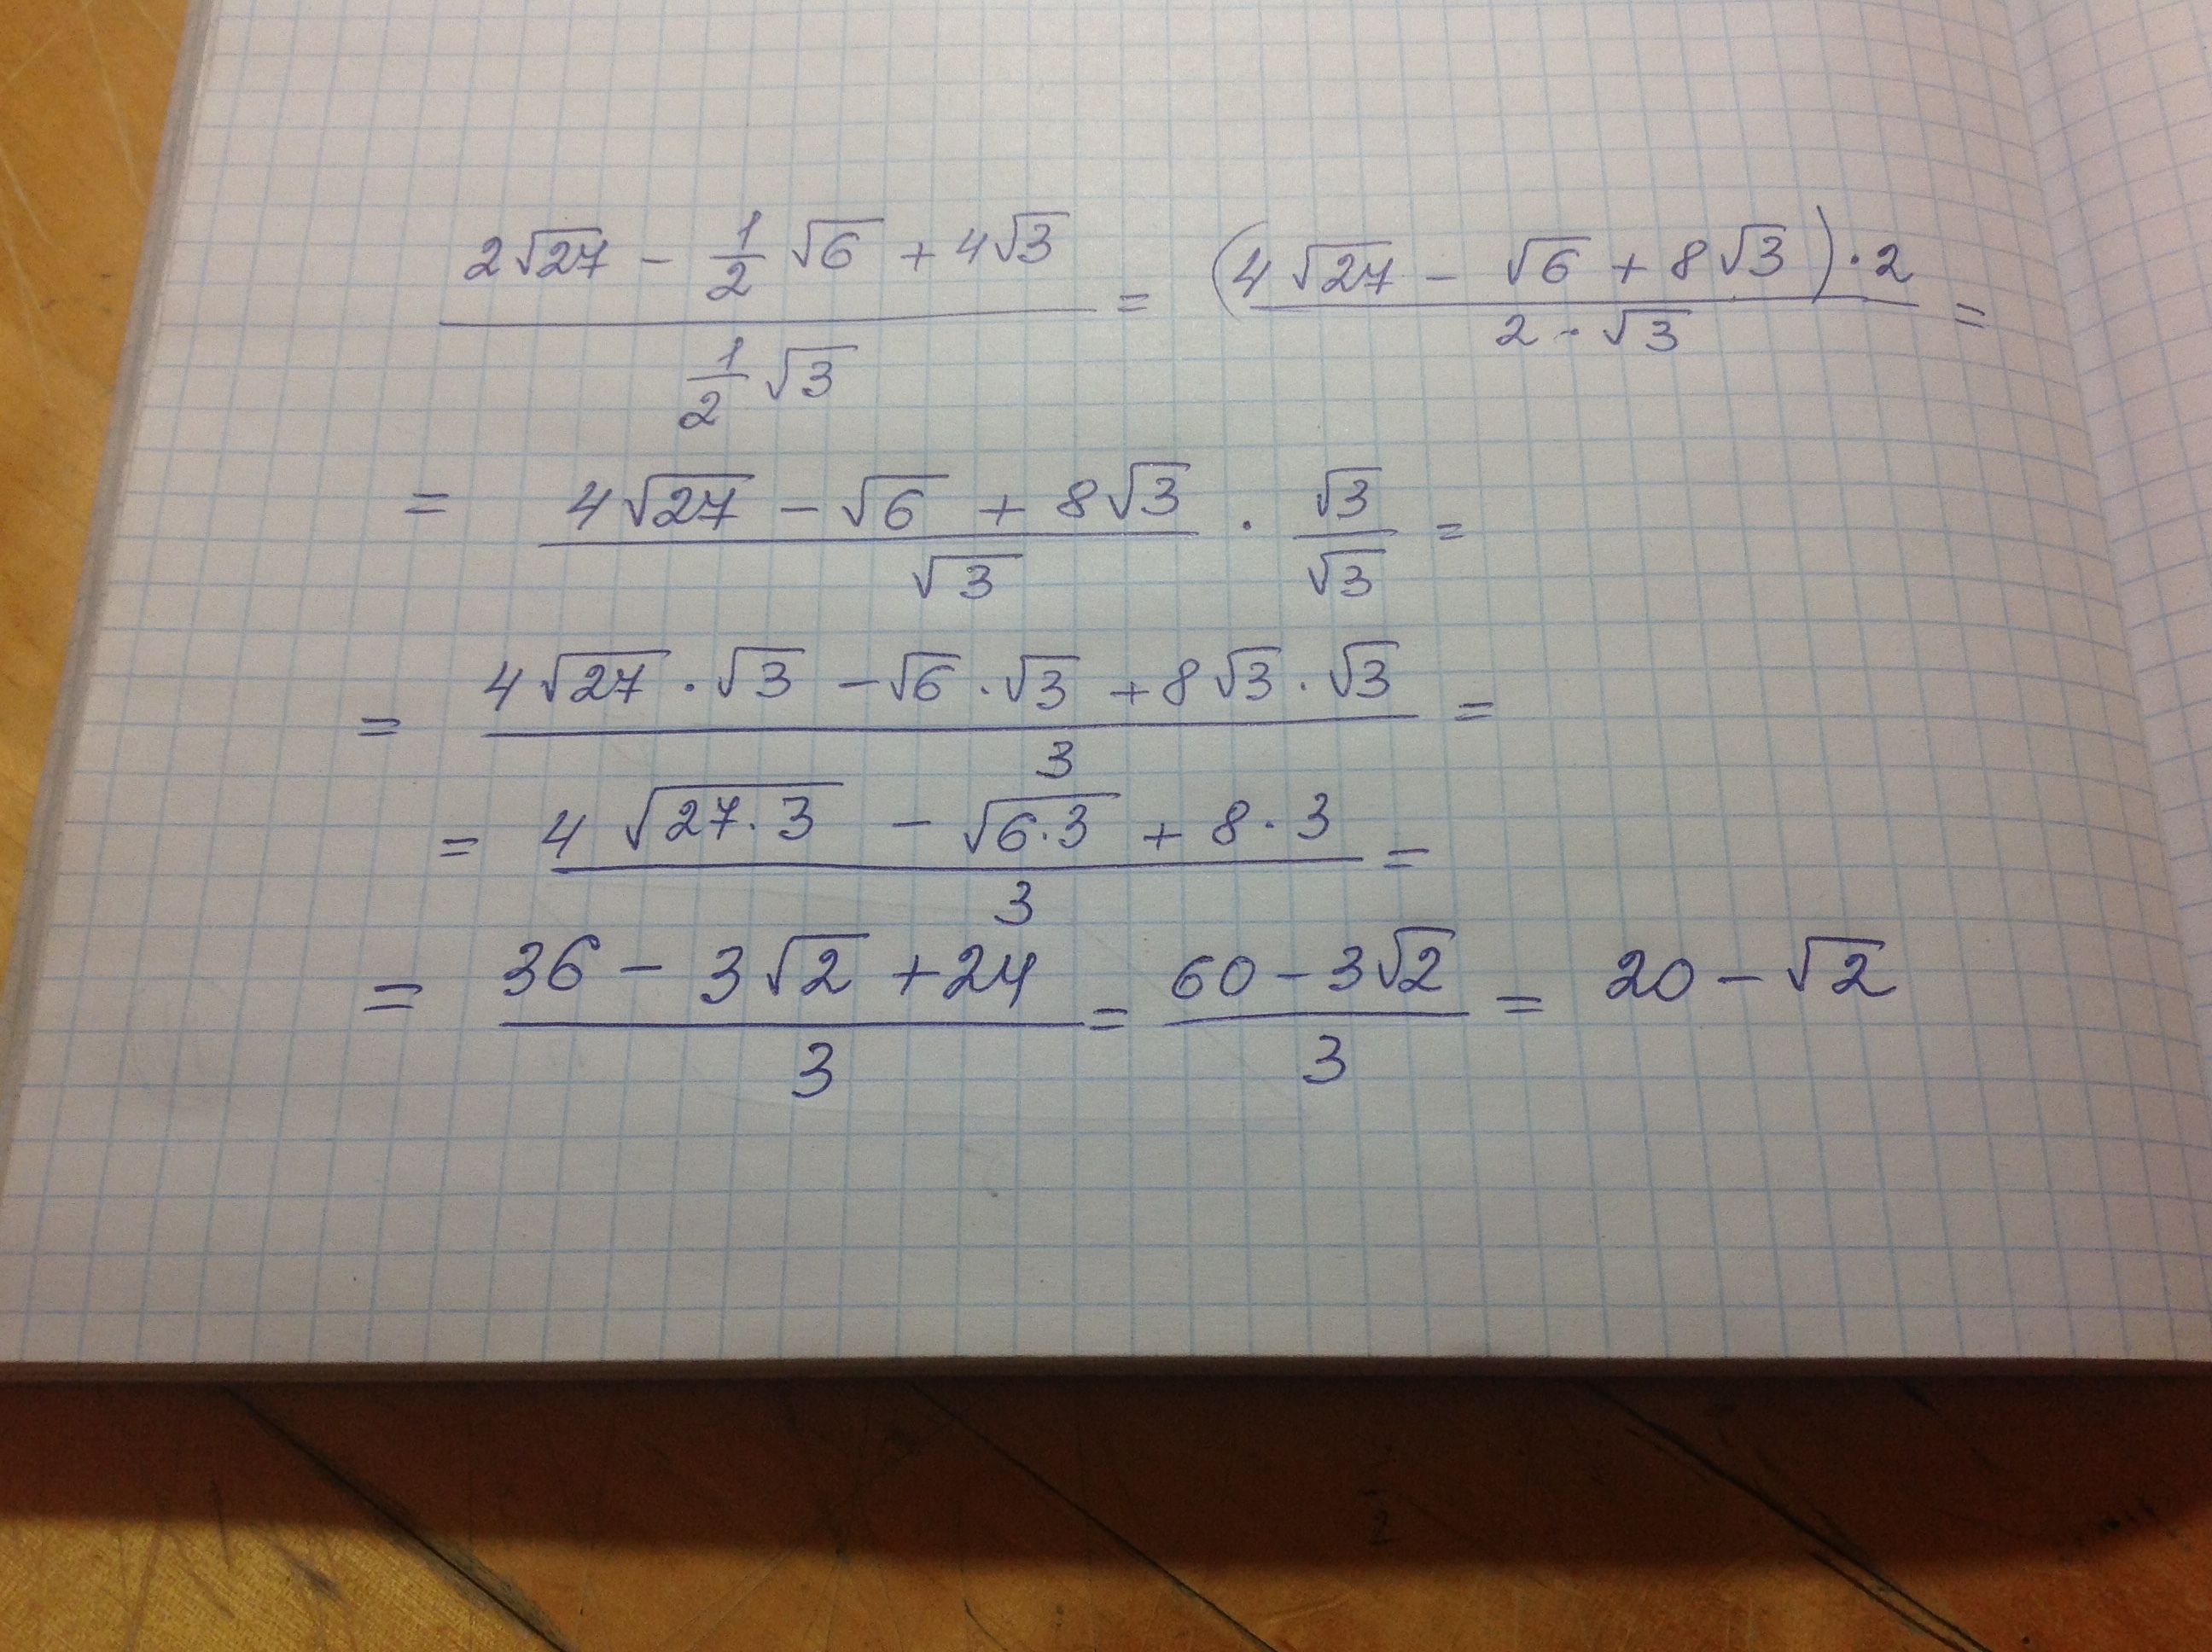 (2√27 - 1/2 √6 + 4√3) / (1/2 √3) = (4√27 - √6 + 8√3) · 2 / (2 · √3) =
= (4√27 - √6 + 8√3) / √3 · √3/√3 =
= (4√27 · √3 - √6 · √3 + 8√3 · √3) / 3 =
= (4 √(27·3) - √(6·3) + 8·3) / 3 =
= (36 - 3√2 + 24) / 3 = (60 - 3√2) / 3 = 20 - √2